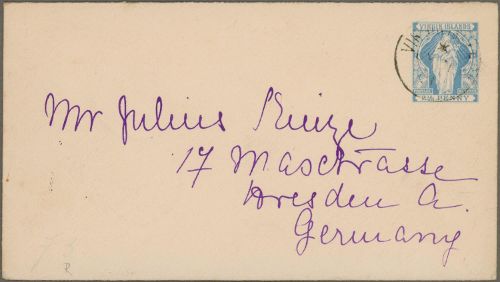 VIRGIN ISLANDS
2½ PENNY
Mr Julius Kunze
17 Mosctrasse
Dresden A.
Germany
R